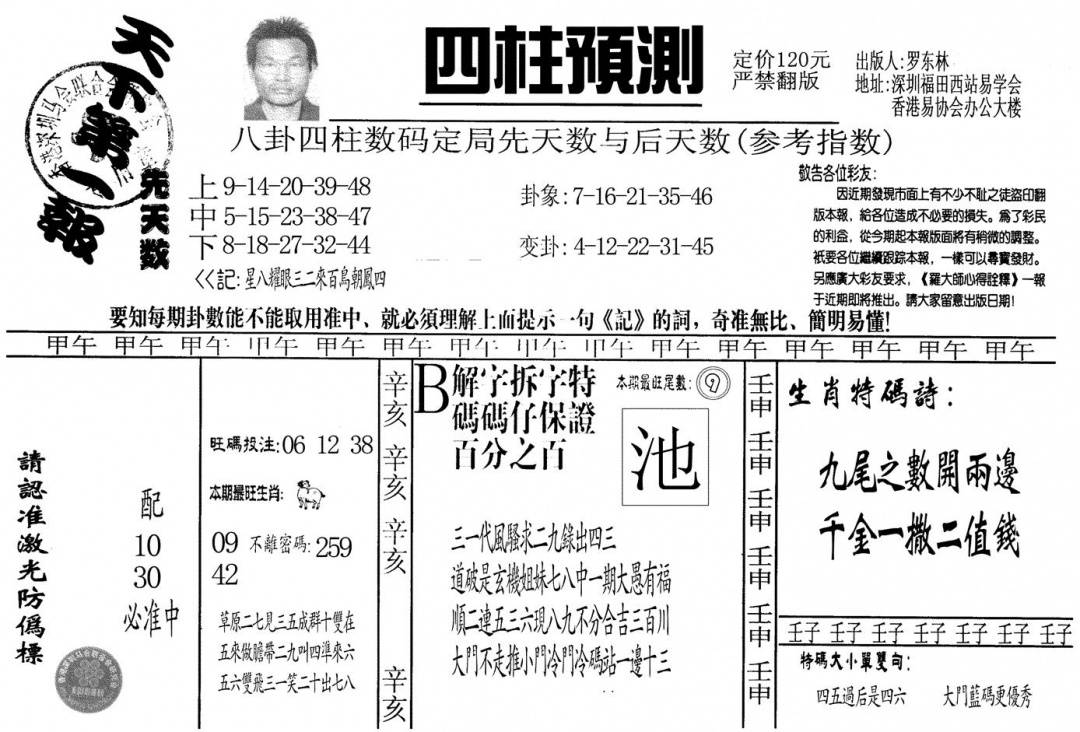 天下第一報
先天数
四柱預測
定价120元
严禁翻版
出版人:罗东林
地址:深圳福田西站易学会
香港易协会办公大楼
八卦四柱数码定局先天数与后天数(参考指数)
上9-14-20-39-48
中5-15-23-38-47
下8-18-27-32-44
卦象:7-16-21-35-46
变卦:4-12-22-31-45
<<記:星八耀眼三二來百鳥朝鳳四
敬告各位彩友:
因近期發現市面上有不少不耻之徒盜印翻
版本報,給各位造成不必要的損失。為了彩民
的利益,從今期起本報版面將有稍微的調整。
衹要各位繼續跟踪本報,一樣可以尋寶發財。
另應廣大彩友要求,《羅大師心得詮釋》一報
于近期即將推出。請大家留意出版日期!
要知每期卦數能不能取用准中、就必須理解上面提示一句《記》的詞,奇准無比、簡明易懂!
甲午 甲午 甲午 甲午 甲午 甲午 甲午 甲午 甲午 甲午 甲午 甲午 甲午 甲午 甲午
請認准激光防僞標
配
10
30
必准中
旺碼投注:06 12 38
本期最旺生肖:
09 不離密碼:259
42
草原二七見三五成群十雙在
五來做膽帶二九叫四準來六
五六雙飛三一笑二十出七八
辛亥
辛亥
辛亥
辛亥
B解字拆字特
碼碼仔保證
百分之百
本期最旺尾數:9
池
三一代風騷求二九錄出四三
道破是玄機姐妹七八中一期大愚有福
順二連五三六現八九不分合吉三百川
大門不走推小門冷門冷碼站一邊十三
壬申
壬申
壬申
壬申
壬申
壬申
生肖特碼詩:
九尾之數開兩邊
千金一撒二值錢
壬子 壬子 壬子 壬子 壬子 壬子 壬子
特碼大小單雙句:
四五過后是四六 大門藍碼更優秀